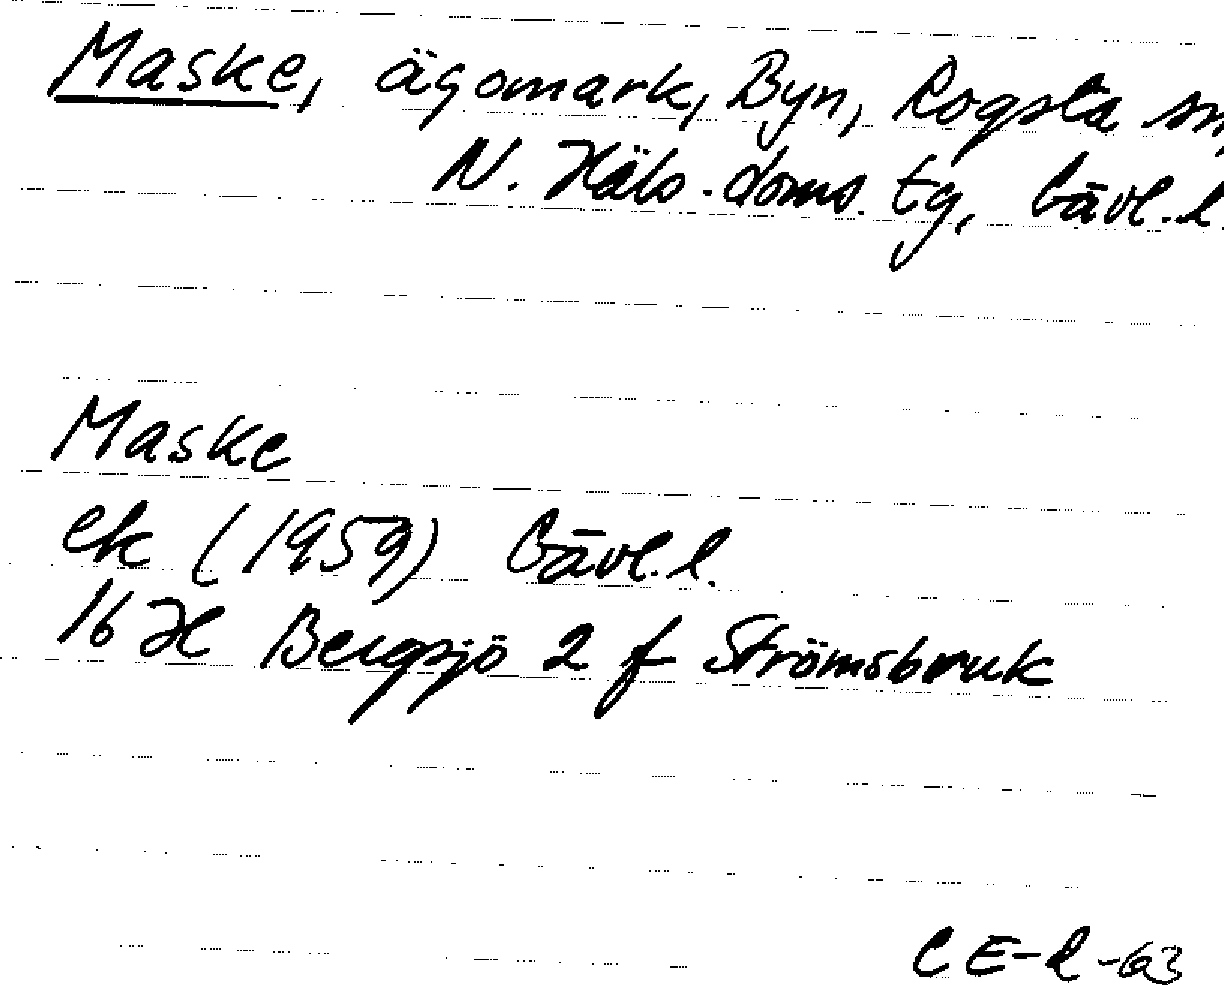 Maske, ägomark, Byn, Rogsta sn,
N. Häls. doms. tg, Gävl. l.
Maske
ek (1959) Gävl. l.
16 H Bergsjö 2 f Strömsbruk
CE-R-63